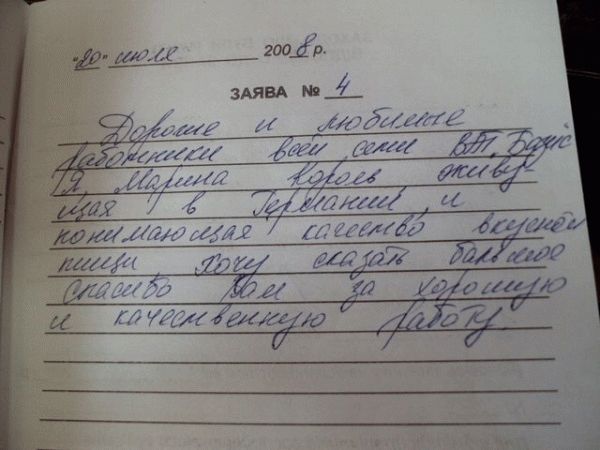 "20" июля 2008 р.
ЗАЯВА № 4
Дорогие и любимые
работники всей семи
Я, Марина Король, живу-
щая в Германии, и
понимающая качество вкусной
пищи, хочу сказать большое
спасибо Вам за хорошую
и качественную работу.